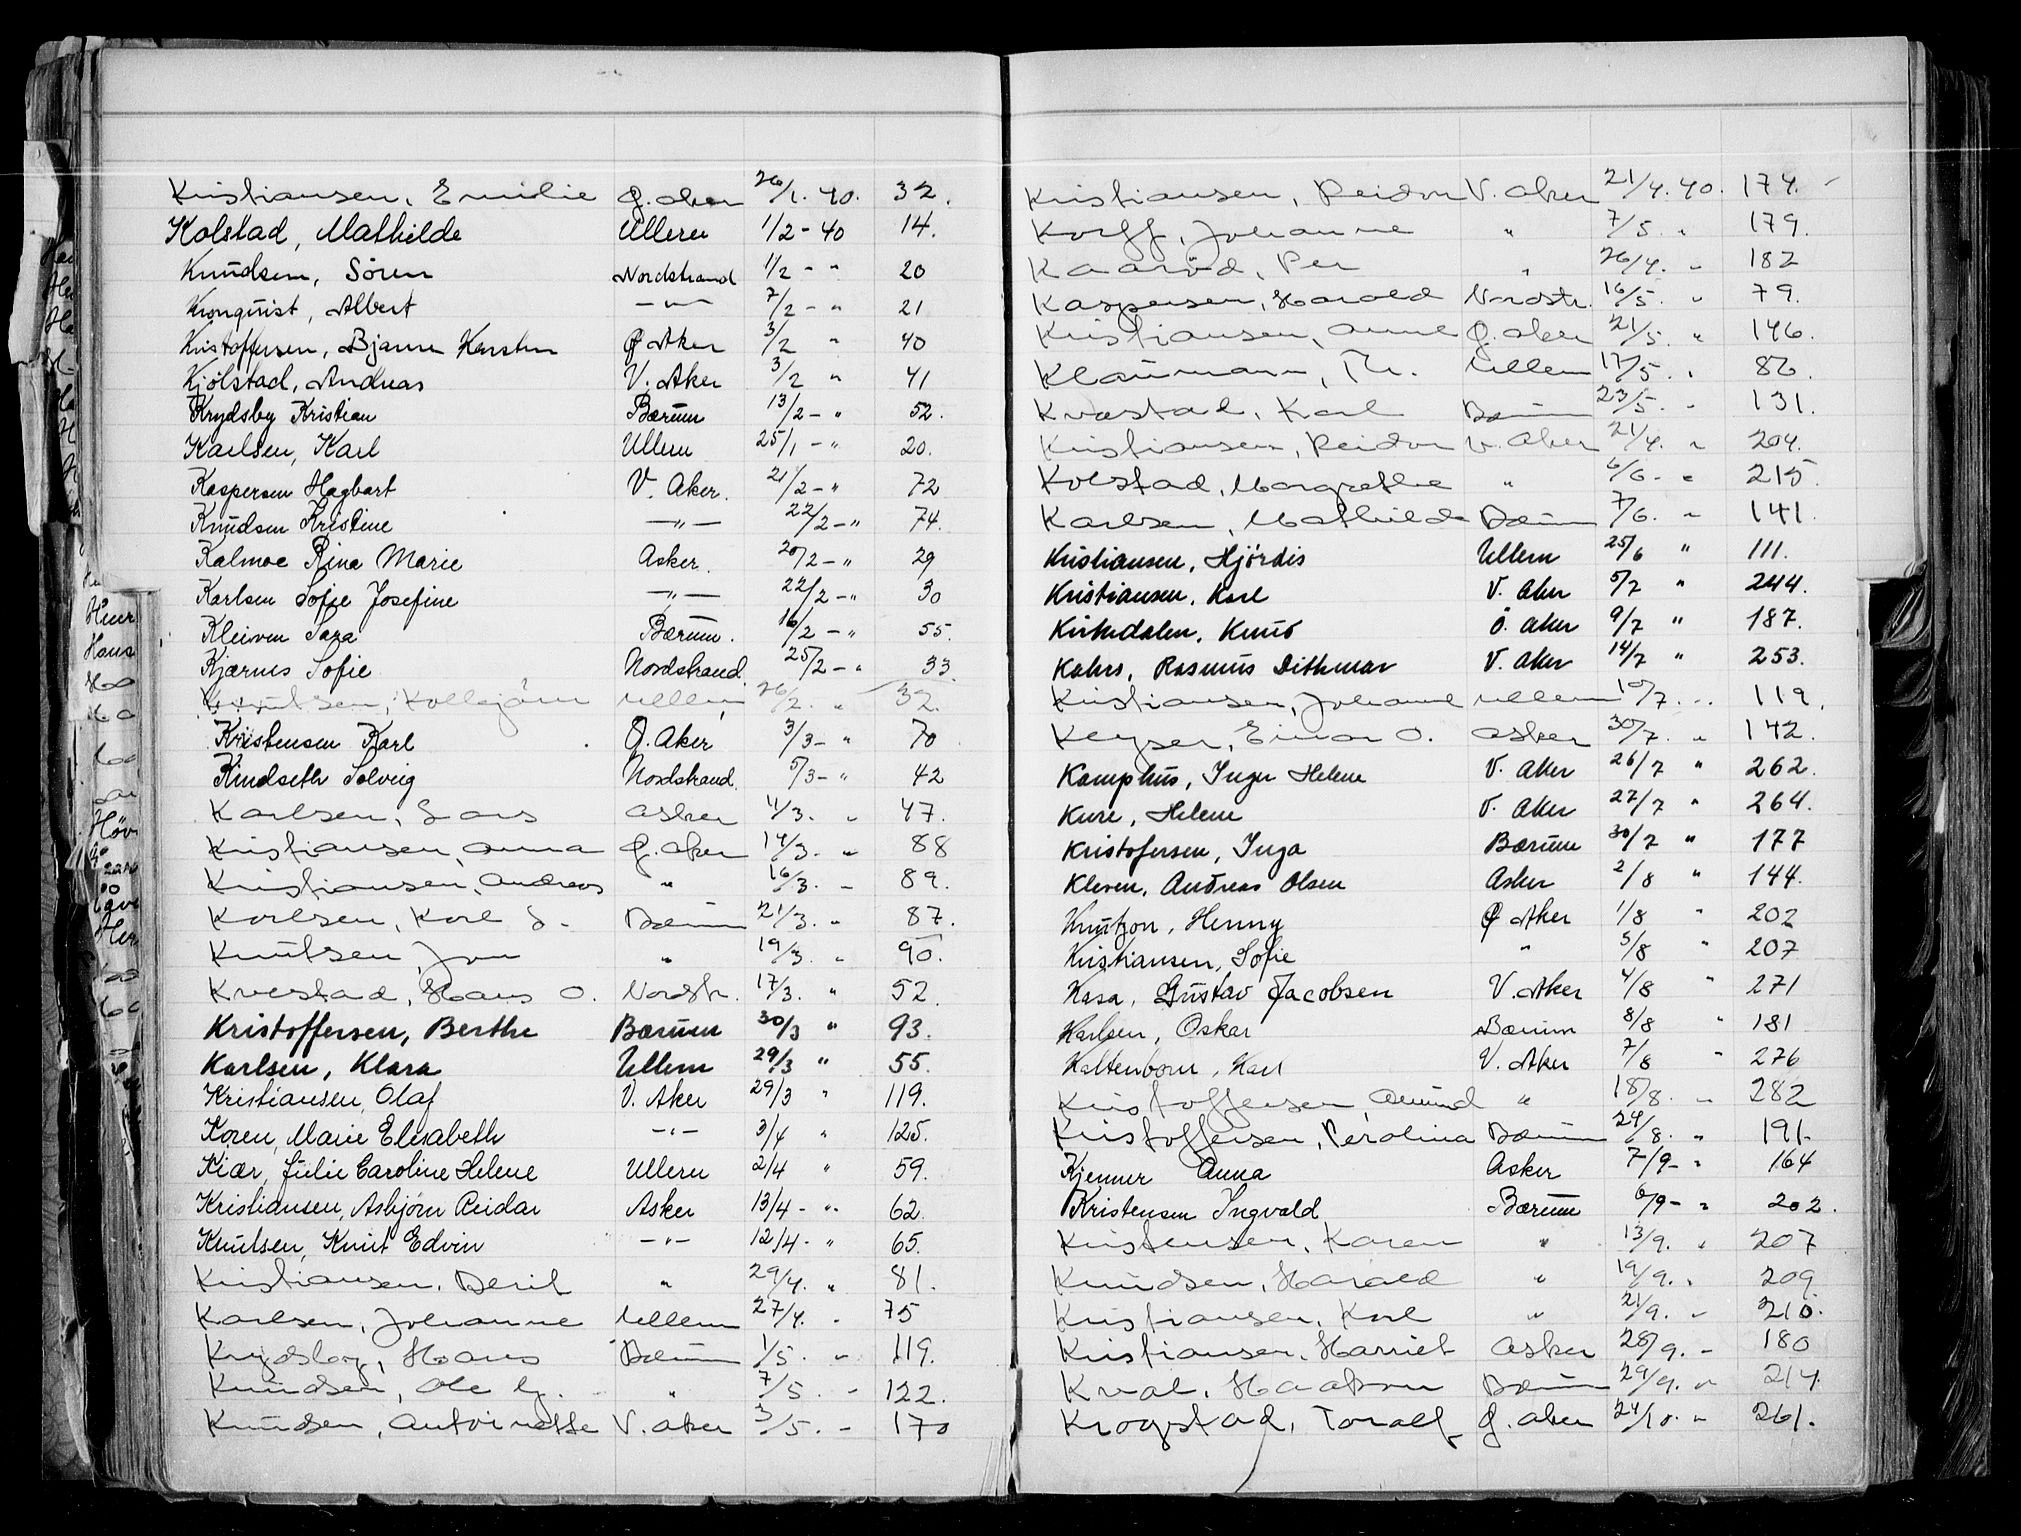 Kristiansen, Emilie Ø. Aker 26/1. 40. 32.
Kolstad, Mathilde Ullern 1/2 - 40 14.
Knudsen, Sören Nordstrand 1/2 - " 20
Kronquist, Albert —"— 7/2 - " 21
Kristoffersen, Bjarne Karsten Ø Aker 3/2 " 40
Kjölstad, Andreas V. Aker 3/2 " 41
Krydsby Kristian Bærum 13/2 - " 52.
Karlsen, Karl Ullern 25/1 - " 20.
Kaspersen Hagbart V. Aker. 21/2 - " 72
Knudsen Kristine —"— 22/2 - " 74.
Kalmoe Rina Marie Asker. 20/2 - " 29
Karlsen Sofie Josefine —"— 22/2 - " 30
Kleiven Sara Bærum. 16/2 - " 55.
Kjærnes Sofie Nordstrand 25/2 - " 33.
Ullern 26/2. " 32.
Kristensen Karl Ø. Aker 3/3 - " 70
Kindseth Solveig Nordstrand. 5/3 - " 42
Karlsen, Lars Asker 11/3. " 47.
Kristiansen, Anna Ø. Aker 14/3. " 88
Kristiansen, Andreas " 16/3. " 89.
Karlsen, Karl S. Bærum 21/3. " 87.
Knutsen, Jon " 19/3. " 90.
Kvestad, Hans O. Nordstr. 17/3. " 52.
Kristoffersen, Berthe Bærum 30/3 " 93.
Karlsen, Klara Ullern 29/3 " 55.
Kristiansen, Olaf V. Aker 29/3 " 119.
Koren, Marie Elisabeth —"— 3/4 " 125.
Kiær, Julie Caroline Helene Ullern 2/4 " 59.
Kristiansen, Asbjörn Reidar Asker 13/4 - " 62.
Knutsen, Knut Edvin —"— 12/4 - " 65.
Kristiansen, Berit " 29/4. " 81.
Karlsen, Johanne Ullern 27/4. " 75
Krydsby, Hans Bærum 1/5. " 119.
Knudsen, Ole " 7/5. " 122.
Knudsen, Antoinette V. Aker 3/5. " 170
Kristiansen, Reidun V. Aker 21/4. 40. 174.
Korff, Johanne " 7/5. " 179.
Kaarud, Per " 26/4. " 182
Kaspersen, Harald Nordstr. 16/5. " 79.
Kristiansen, Anne Ø. Aker 21/5. " 146.
Klaumann, Th. Ullern 17/5. " 86.
Kvestad, Karl Bærum 23/5. " 131.
Kristiansen, Reidun V. Aker 21/4. " 204.
Kolstad, Margrethe " 6/6. " 215.
Karlsen, Mathilde Bærum 7/6. " 141.
Kristiansen, Hjördis Ullern 25/6 " 111.
Kristiansen, Karl V. Aker 5/7 " 244.
Kirkedalen, Knud Ö. Aker 9/7 " 187.
Kahrs, Rasmus Dithmar V. Aker 14/7 " 253.
Kristiansen, Johanne Ullern 10/7. " 119.
Keyser, Einar O. Asker 30/7. " 142.
Kamphus, Inger Helene V. Aker 26/7 " 262.
Kure, Helene V. Aker 27/7 " 264.
Kristofersen, Inga Bærum 30/7 " 177
Kleven, Andreas Olsen Asker 2/8 " 144.
Knutzon, Henny Ø Aker 1/8 " 202
Kristiansen, Sofie " 5/8 " 207
Kasa, Gustav Jacobsen V. Aker 4/8 " 271
Karlsen, Oskar Bærum 8/8 " 181
Kaltenborn, Karl V. Aker 7/8 " 276
Kristoffersen, Amund " 18/8. " 282
Kristoffersen, Perolina Bærum 24/8. " 191.
Kjenner Anna Asker 7/9 - " 164
Kristensen Ingvald Bærum 6/9 - " 202.
Kristensen, Karen " 13/9. " 207
Knudsen, Harald " 19/9. " 209
Kristiansen, Karl " 21/9. " 210.
Kristiansen, Harriet Asker 28/9. " 180
Kval, Haakon Bærum 29/9. " 214.
Krogstad, Toralf Ø. Aker 24/10. " 261.